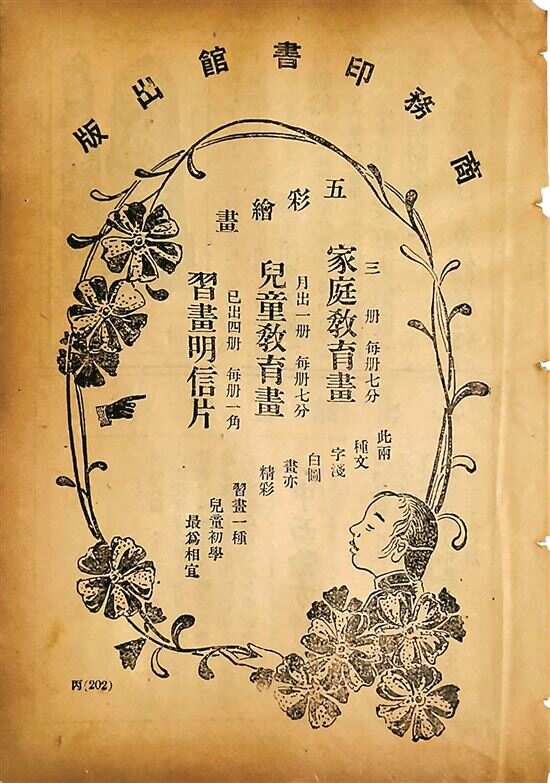 商務印書館出版
五彩繪畫
家庭敎育畫
三册 每册七分
兒童敎育畫
月出一册 每册七分
習畫明信片
已出四册 每册一角
此兩
種文
字淺
白圖
畫亦
精彩
習畫一種
兒童初學
最爲相宜
丙(202)